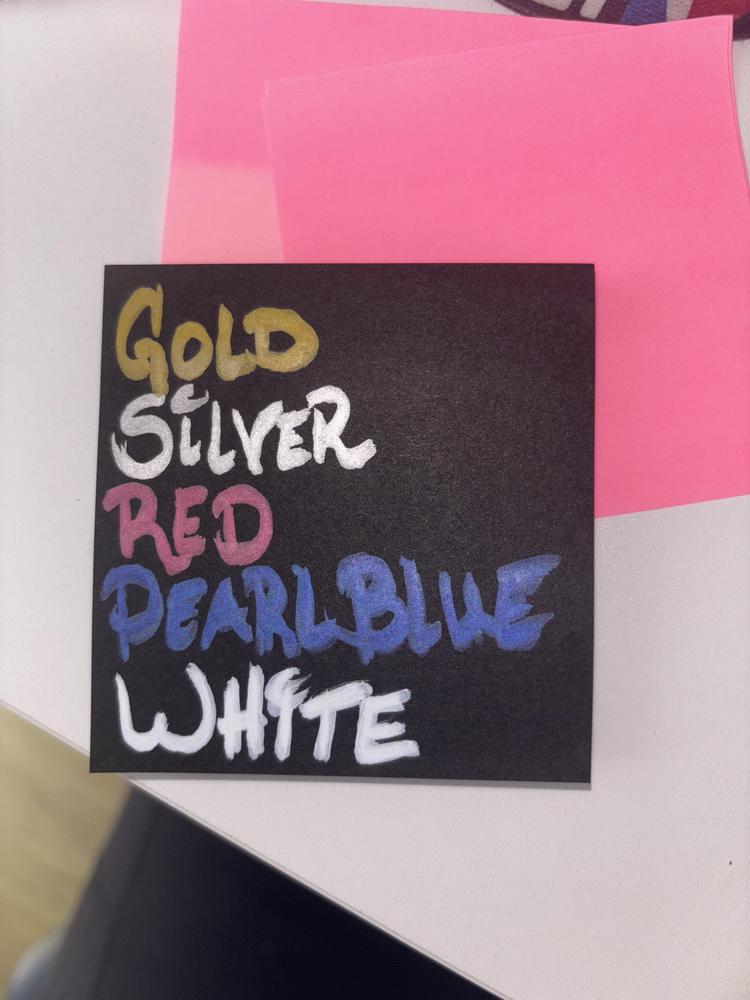 GOLD
SiLVER
RED
PEARL BLUE
WHiTE